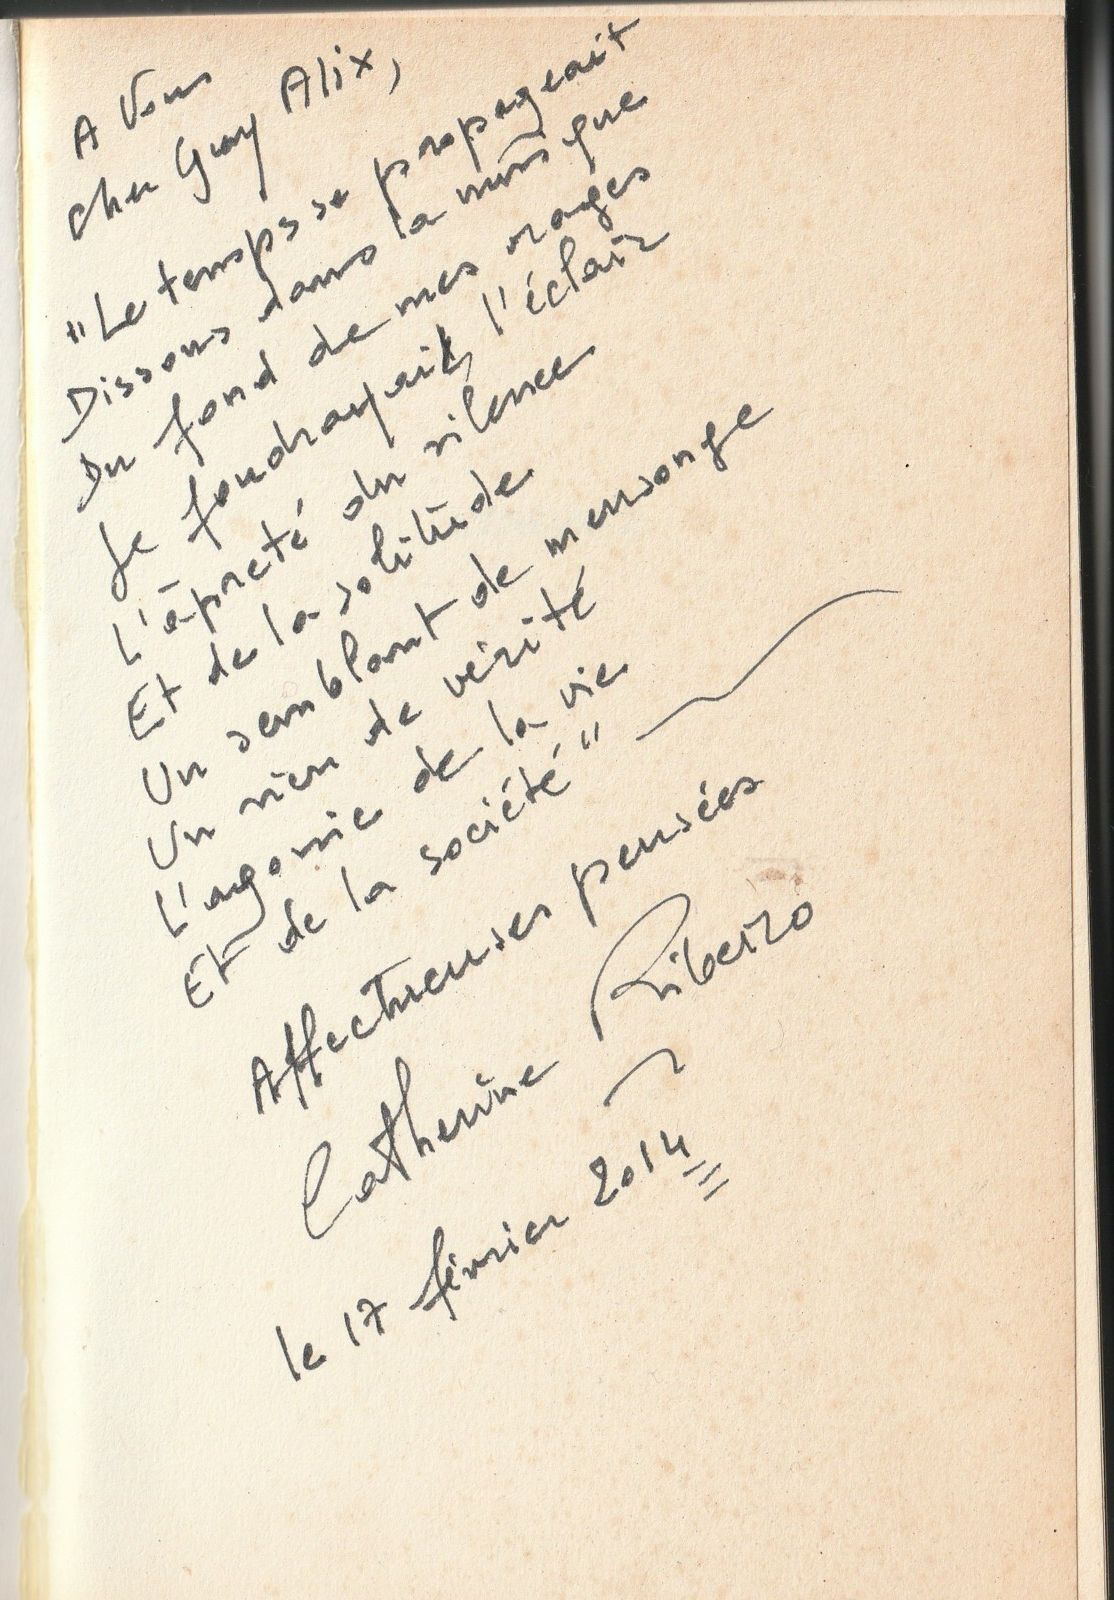 A Vous
Cher Guy Alix,
"Le temps se propageait
Dissous dans la musique
Du fond de mes rages
Je foudroyais l'éclair
L'âpreté du silence
Et de la solitude
Un semblant de mensonge
Un rien de vérité
L'agonie de la vie
Et de la société"
Affectueuses pensées
Catherine Ribeiro
le 17 février 2014